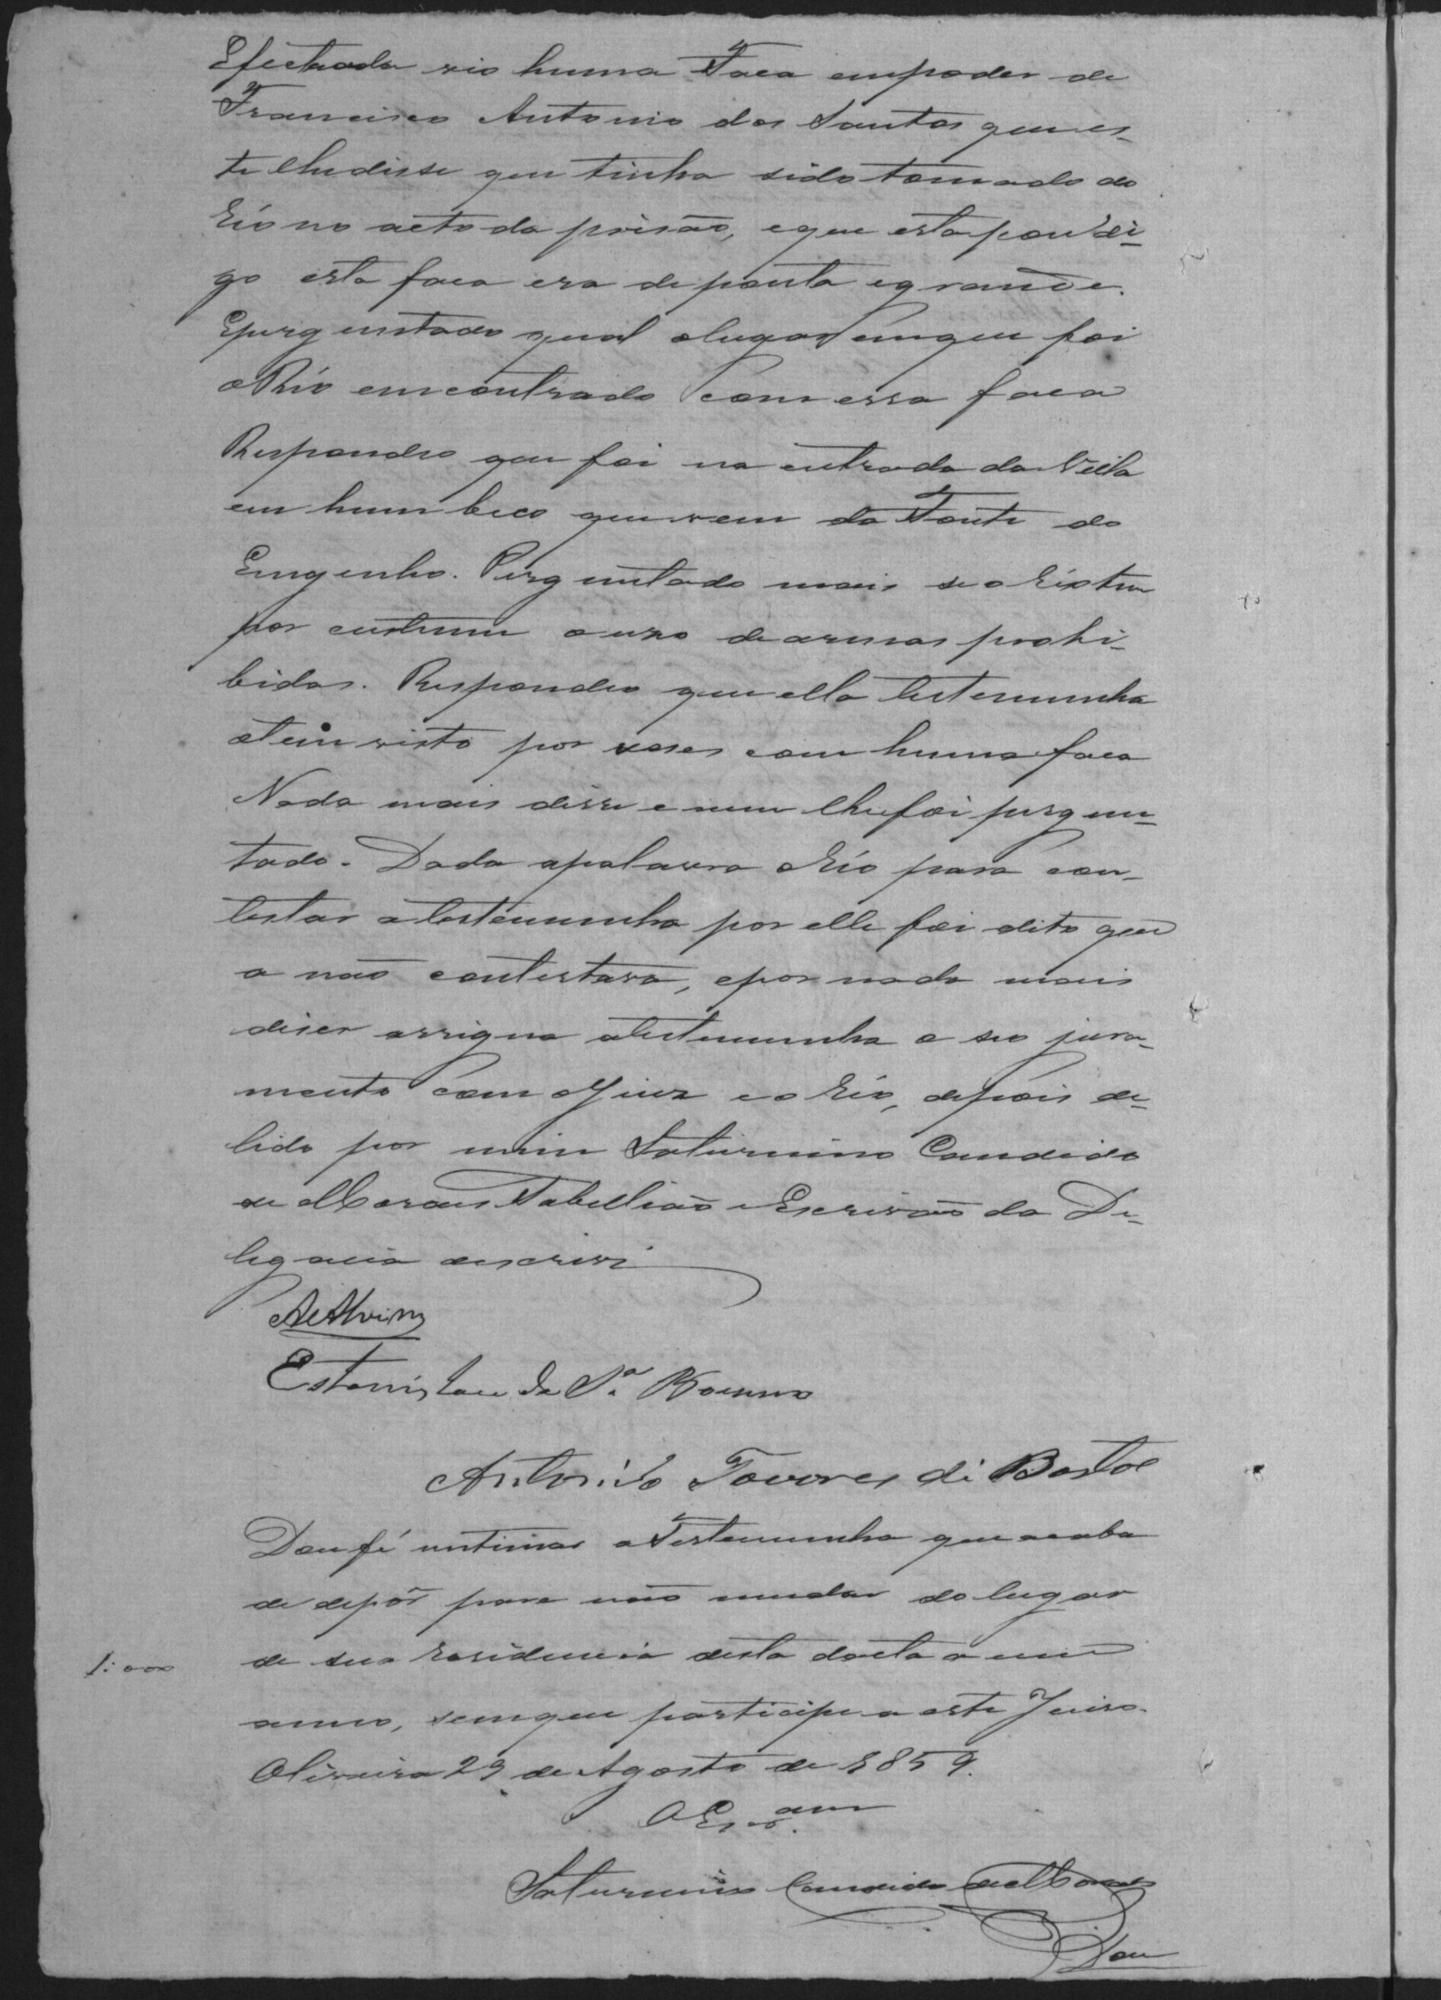 Efectuada vio huma Faca empoder de
Francisco Antonio dos Santos que es-
te lhedisse que tinha sido tomado do
Réo no acto da prisão, eque esta pou di-
go esta faca era deponta egrande.
Eperguntado qual olugar emque foi
o Réo emcontrado com essa faca
Respondeo que foi na entrada da Villa
em hum beco quevem da Fonte do
Engenho. Perguntado mais se o Réo tem
por custume o uzo dearmas prohi-
bidas. Respondeo que ella testemunha
otem visto por veses com huma faca
Nada mais disse e nem lhefoi pergun-
tado. Dada apalavra oRéo para con-
testar atestemunha por elle foi dito que
a não contestava, epor nada mais
diser assigna atestemunha o seo jura-
mento com oJuiz e o Réo, depois de
lido por mim Saturnino Candido
de Moraes Tabellião e Escrivão da De-
legacia oescrevi
Estanislau da Sª
Antonio Tavares di Bastos
Dou fé intimar a Testemunha que acaba
de depôr para não mudar do lugar
de sua residencia desta dacta a um
anno, semque participe a este Juiso.
Oliveira 29 de Agosto de 1859.
O Escram.
Saturnino Candido de Moraes
1:000